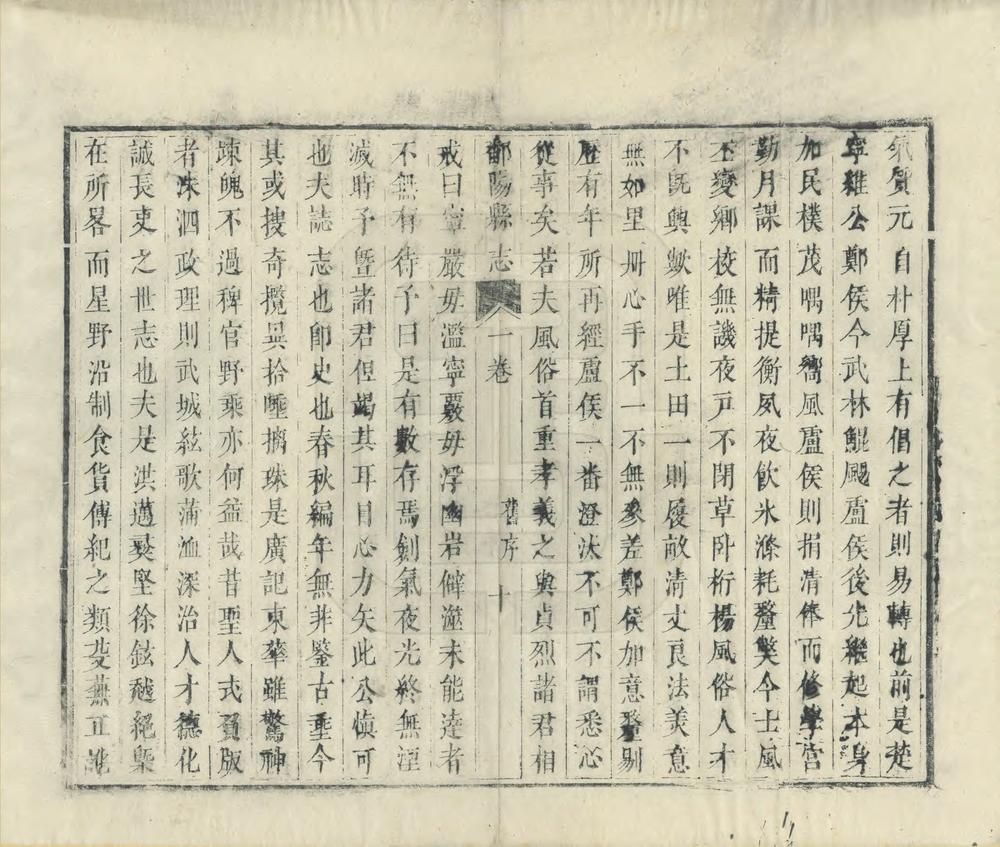 氣質元自朴厚上有倡之者則易轉也前是楚
寧維公鄭侯今武林鯤颺盧侯後先繼起本身
加民樸茂喁喁嚮風盧侯則捐清俸而修學宮
勤月課而精提衡夙夜飲氷滌耗釐獘今士風
丕變鄉校無譏夜戸不閉草卧桁楊風俗人才
不旣興歟唯是土田一則履畝清丈良法美意
無如里冊心手不一不無參差鄭侯加意釐剔
歷有年所再經盧侯一番澄汰不可不謂悉心
從事矣若夫風俗首重孝義之與貞烈諸君相
鄱陽縣志 一卷 舊序 十
戒曰寧嚴毋濫寧覈毋浮幽岩僻澨未能達者
不無有待予曰是有數存焉劍氣夜光終無湮
滅時予曁諸君但竭其耳目心力矣此公愼可
也夫誌志也卽史也春秋編年無非鑒古垂今
其或搜奇攬異拾唾摛珠是廣記東華雖驚神
竦魄不過稗官野乘亦何益哉昔聖人式負版
者洙泗政理則武城絃歌蒲洫深治人才德化
誠長吏之世志也夫是洪邁裒堅徐鉉越絕槩
在所畧而星野沿制食貨傳紀之類芟蕪正訛